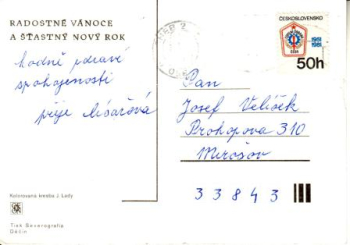 RADOSTNÉ VÁNOCE
A ŠŤASTNÝ NOVÝ ROK
hodně zdraví
spokojenosti
přeje Mísařová
Kolorovaná kresba J. Lady
Tisk Severografia
Děčín
ČESKOSLOVENSKO
50h
Pan
Josef Velíšek
Prokopova 310
Mirošov
33843